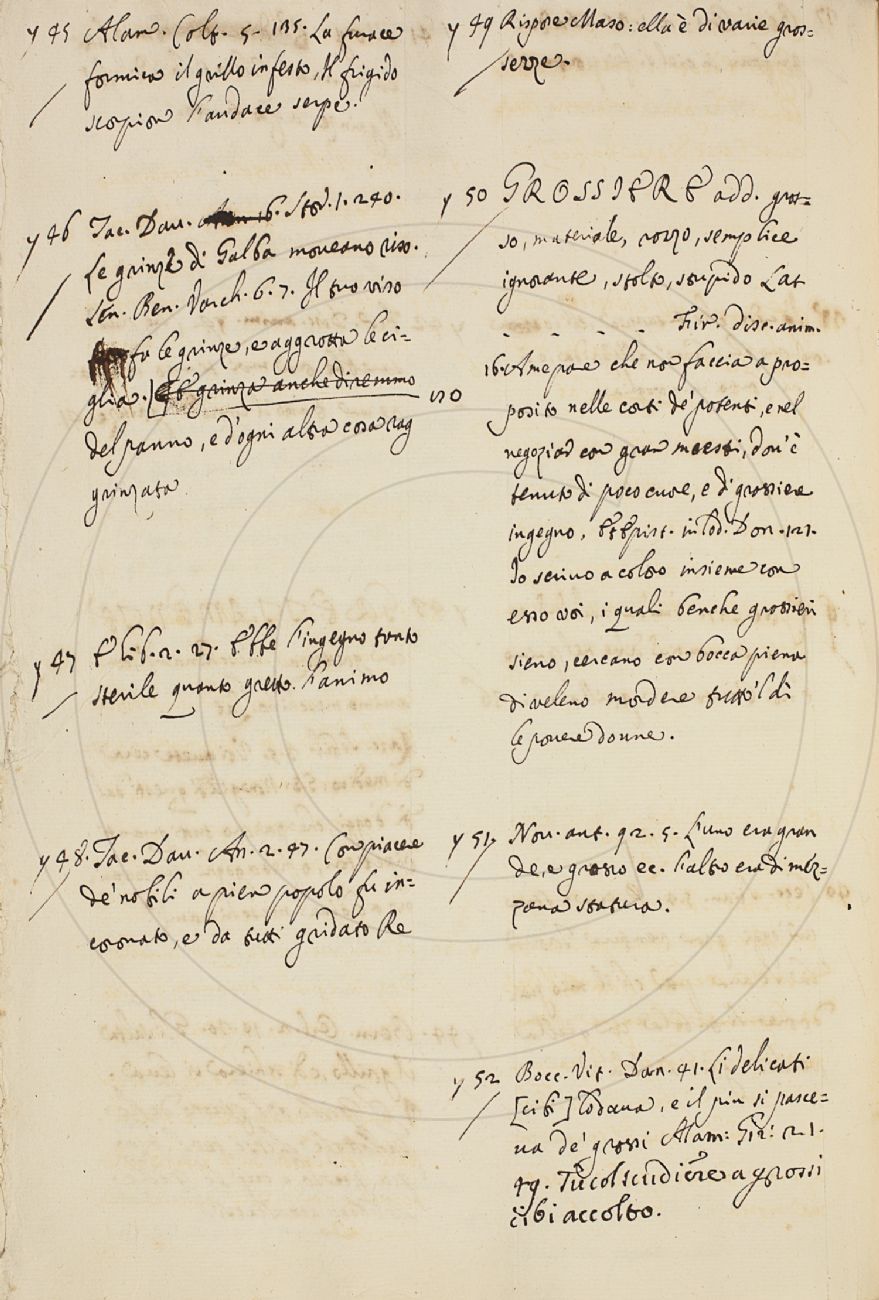 y 45 Alam. Colt. 5. 135. La furace
formica il grillo infesto, Il frigido
scorpion l'audace serpe.
y 46 Tac. Dav. Stor. 1. 240.
Le grinze di Galba moveano riso.
Sen. Ben. Varch. 6. 7. Il tuo viso
fa le grinze, e aggrotta le ci=
glia.] E grinza anche diremmo
del panno, e d'ogni altra cosa rag
grinzata
y 47 E lib. 2. 27. Ebbe l'ingegno tanto
sterile quanto gretto l'animo
y 48. Tac. Dav. An. 2. 47. Con piacere
de' nobili a pien popolo fu in=
coronato, e da tutti gridato Re
y 49 Rispose Maso: ella è di varie gros=
sezze.
y 50 GROSSIERE add. gros=
so, materiale, rozzo, semplice
ignorante, stolto, stupido Lat
. - - - - Fir. disc. anim.
16. A me pare che non faccia a pro=
posito nelle corti de' potenti, e nel
negoziar con gran maestri, dov'è
tenuto di poco cuore, e di grossiere
ingegno, E Epist. in lod. Don. 121.
Io scrivo a coloro insieme con
esso voi, i quali benche grossieri
sieno, cercano con bocca piena
di veleno mordere tutto 'l dì
le povere donne.
y 51. Nov. ant. 92. 5. L'uno era gran
de, e grosso ec. l'altro era di mez=
zana statura.
y 52 Bocc. Vit. Dan. 41. Li delicati
[cibi] lodava, e il più si pasce=
va de' grossi Alam: Gir: 21.
49. Fu col scudiere a grossi
cibi accolto.